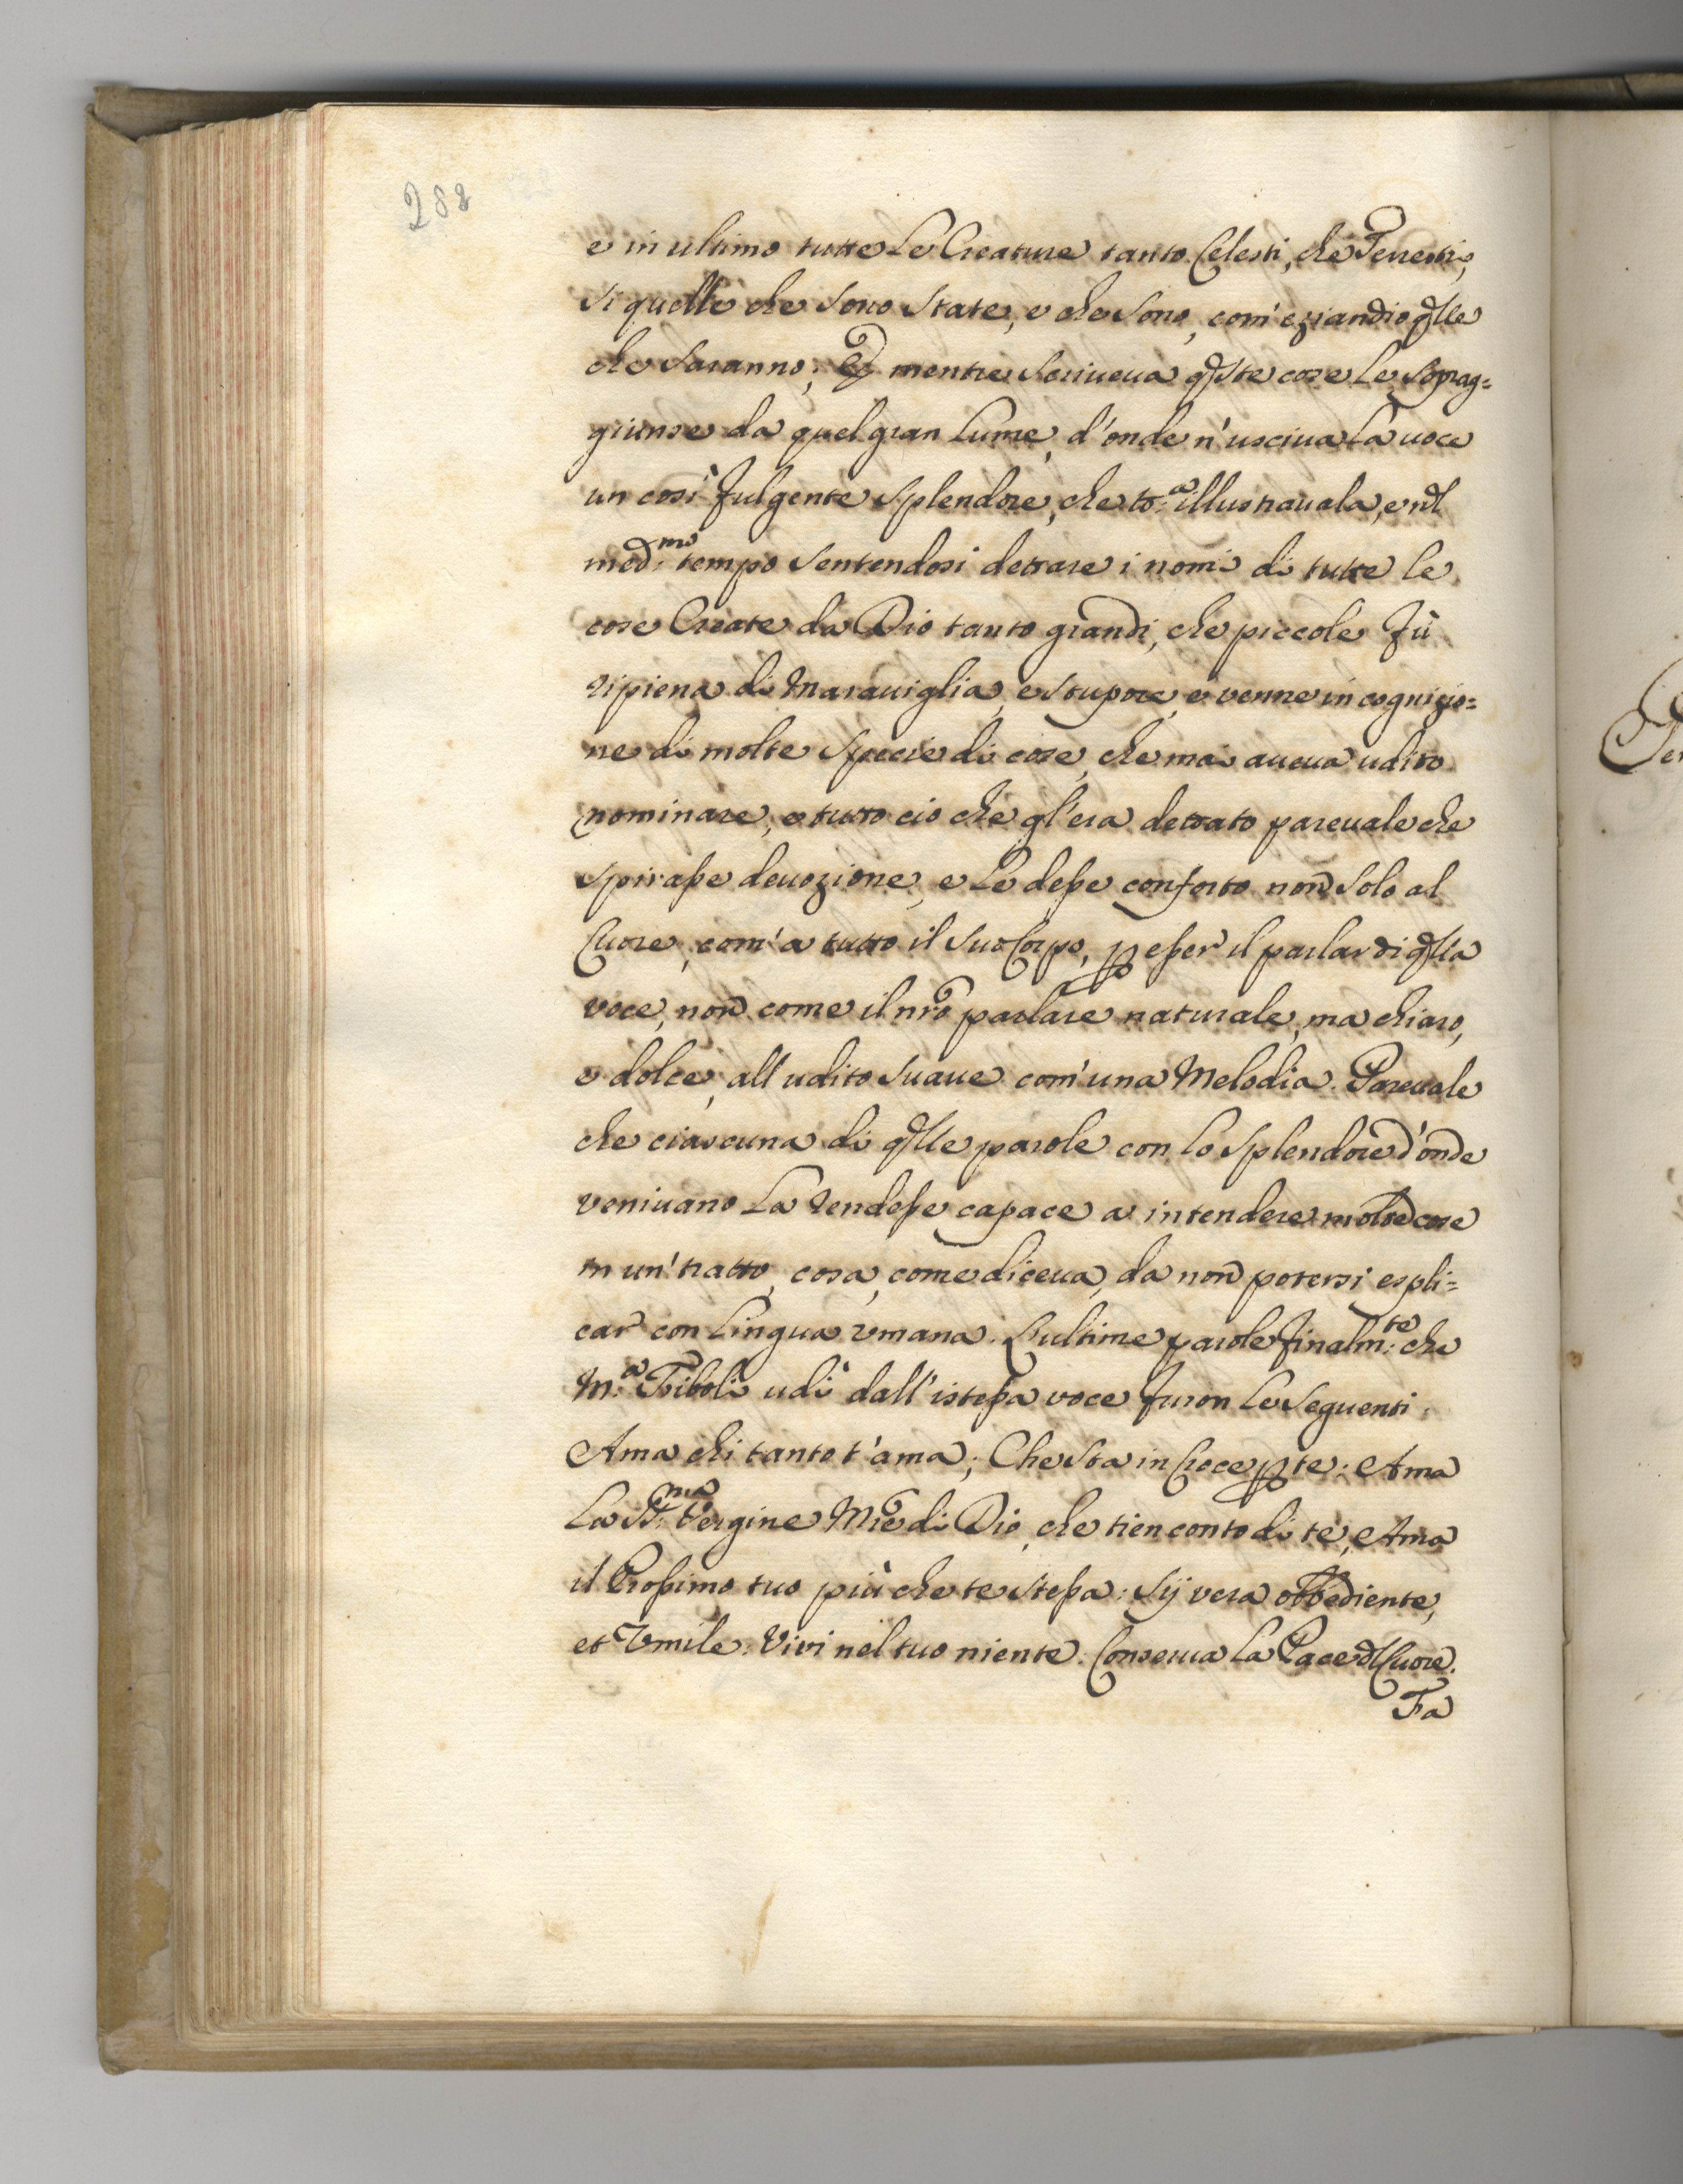 288
e in ultimo tutte Le Creature tanto Celesti, che Terrestri,
si quelle che sono State, e che sono, com' eziandio qlle
che saranno; Et mentre scriueua qste cose Le soprag=
giunse da quel gran Lume, d'onde n'usciua La uoce
un così fulgente splendore, che tta. illustrauala, e nl
med.mo tempo sentendosi dettare i nomi di tutte le
cose Create da Dio tanto grandi, che piccole fù
ripiena di Marauiglia, e stupore, e venne in cognizio=
ne di molte specie di cose, che mai aueua udito
nominare, e tutto ciò che gl'era dettato pareuale che
spirasse deuozione, e Le desse conforto non solo al
Cuore, com' a tutto il suo Corpo, p esser il parlar di qlla
voce, non come il nrõ parlare naturale, ma chiaro,
e dolce, all udito suaue com' una Melodia. Pareuale
che ciascuna di qlle parole con lo splendore d'onde
veniuano La rendesse capace a intendere molte cose
in un' tratto, cosa, come diceua, da non potersi espli=
car con Lingua vmana. L'ultime parole finalm.te che
M.a Fiboli udì dall' istessa voce furon Le seguenti.
Ama chi tanto t'ama; Che sta in Croce p te: Ama
La SS.ma Vergine Mrẽ di Dio, che tien conto di te, Ama
il Prossimo tuo più che te stessa: Sij vera obbediente,
et Vmile. Vivi nel tuo niente. Conserua La Pace dl Cuore.
Fa